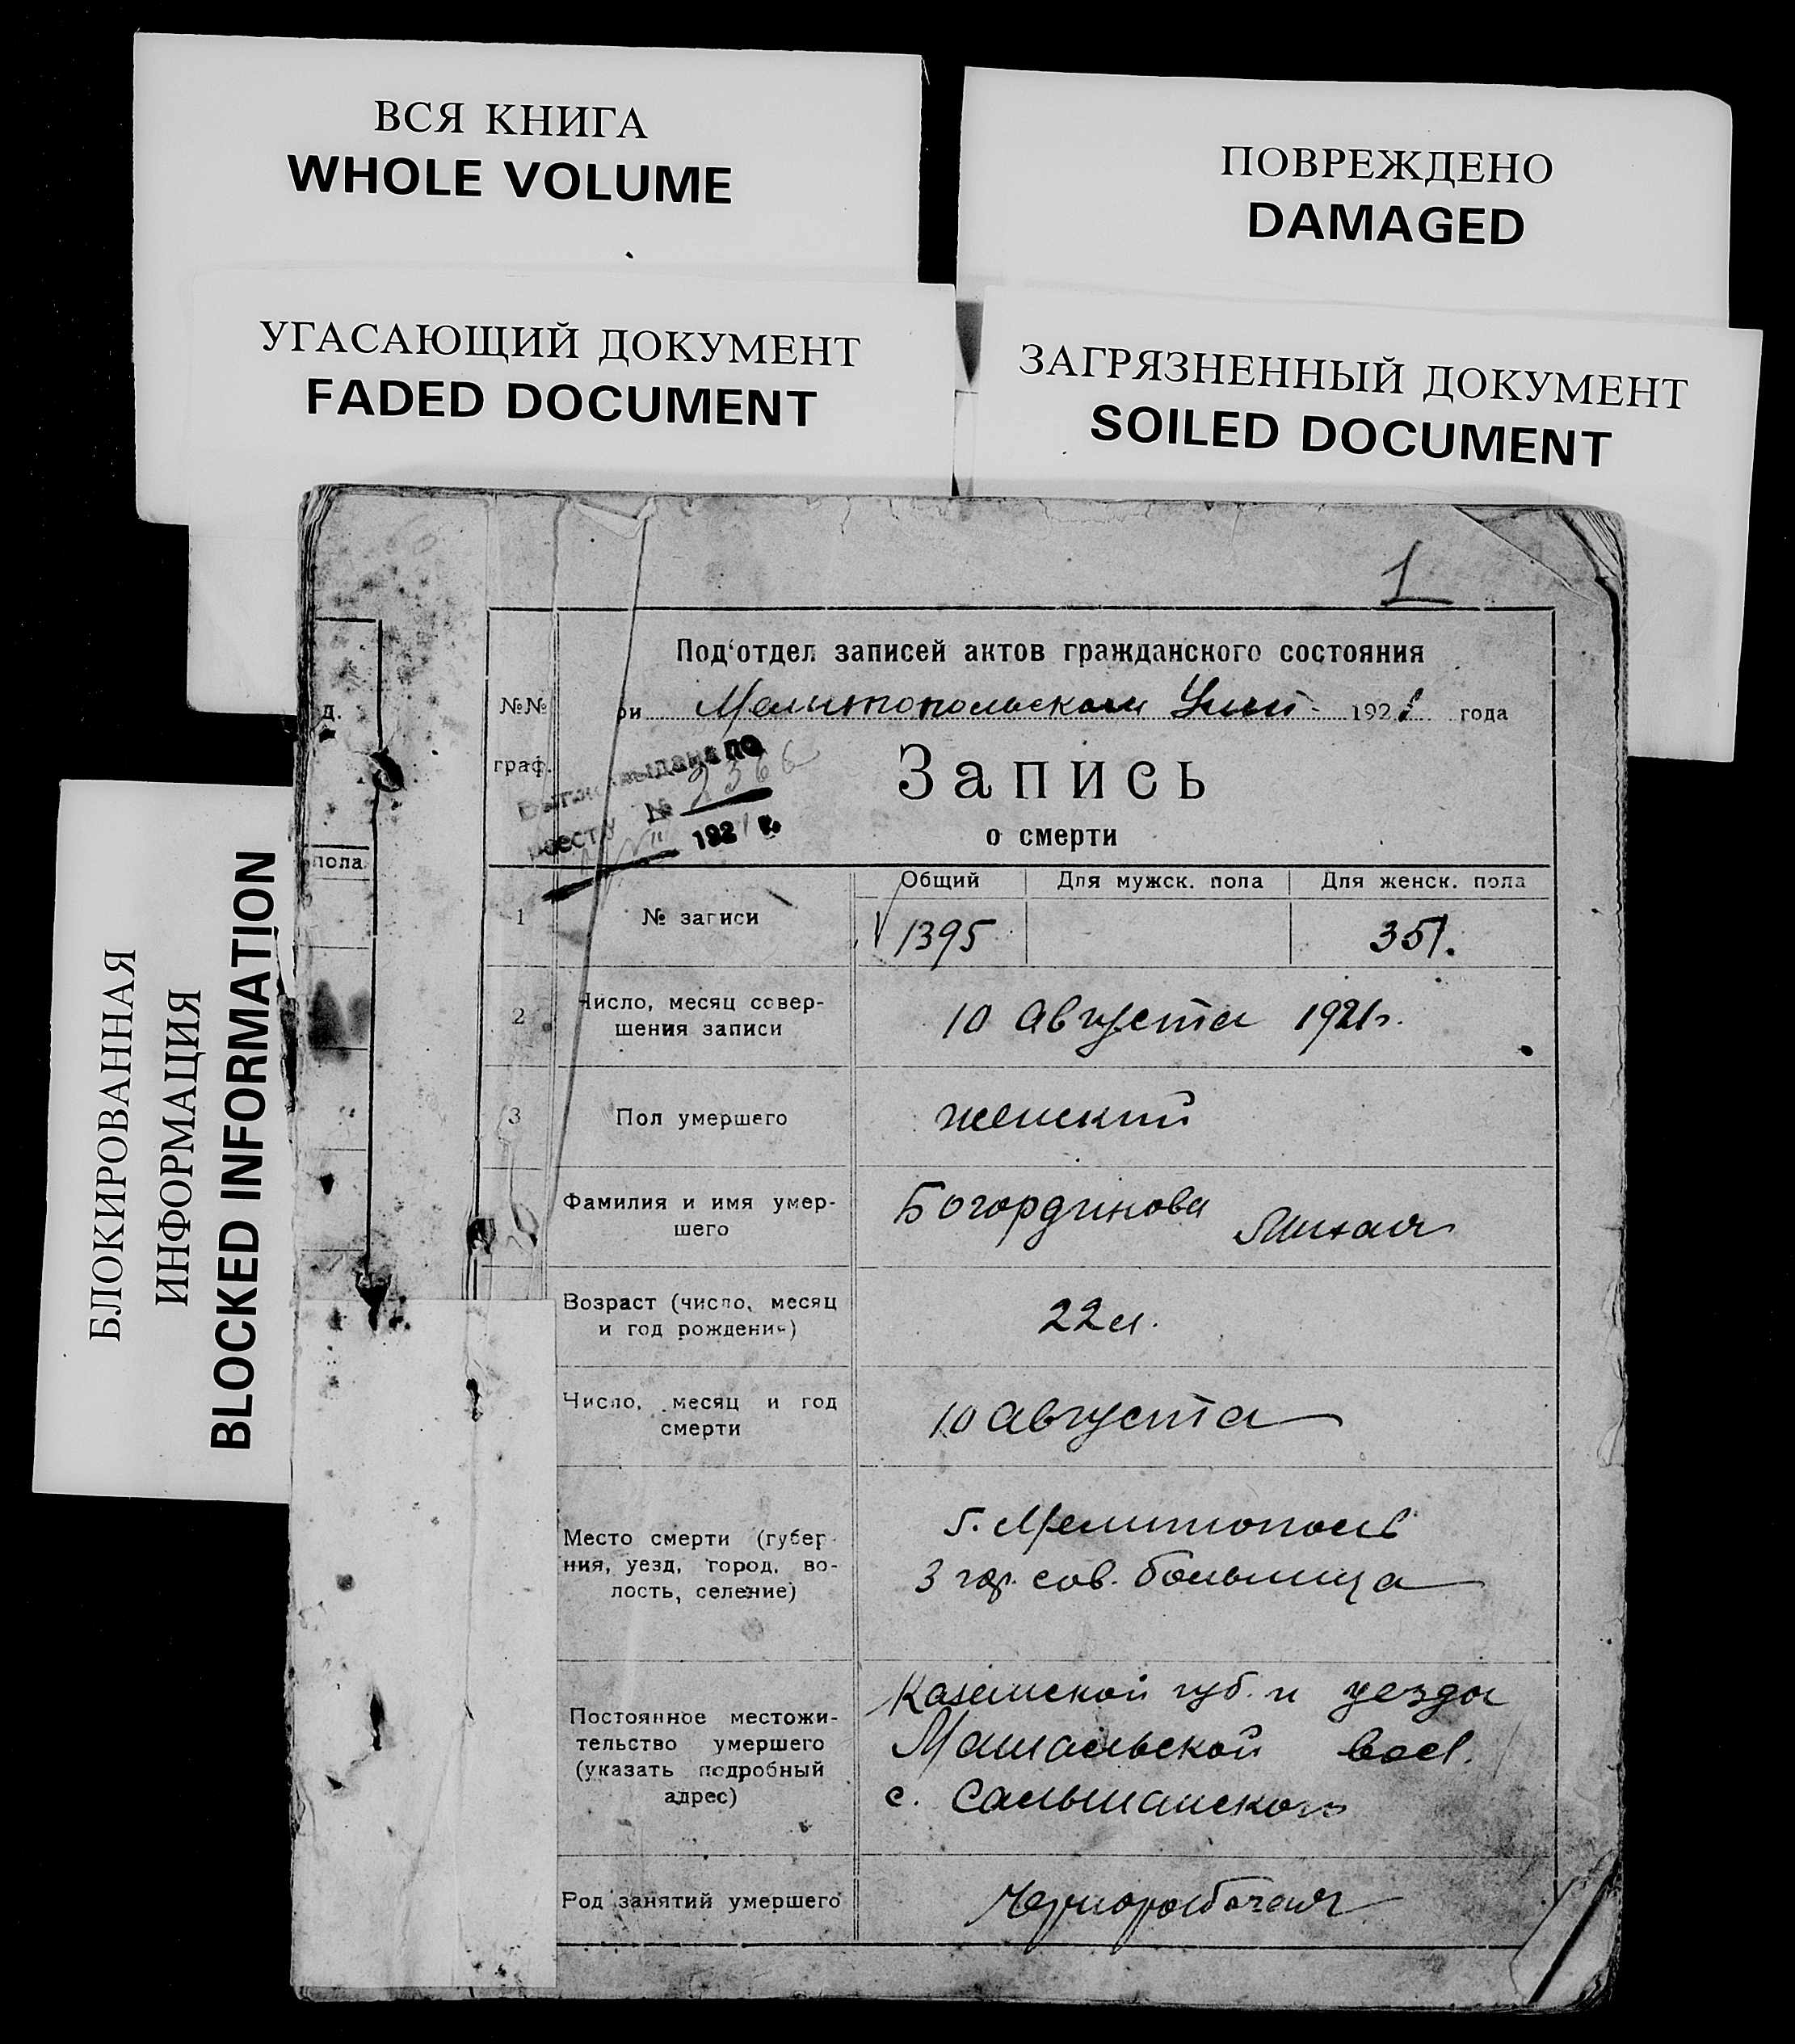 ВСЯ КНИГА
WHOLE VOLUME
ПОВРЕЖДЕНО
DAMAGED
УГАСАЮЩИЙ ДОКУМЕНТ
FADED DOCUMENT
ЗАГРЯЗНЕННЫЙ ДОКУМЕНТ
SOILED DOCUMENT
БЛОКИРОВАННАЯ
ИНФОРМАЦИЯ
BLOCKED INFORMATION
д.
пола
1
Под'отдел записей актов гражданского состояния
№№
граф.
ри Мелитопольском 1921 года
выдана по
№ 2366
1921 г.
Запись
о смерти
Общий Для мужск. пола Для женск. пола
1 № записи 1395 351.
2 Число, месяц совер-
шения записи
10 августа 1921г.
3 Пол умершего женский
Фамилия и имя умер-
шего
Богординова
Возраст (число, месяц
и год рождения)
22 л.
Число, месяц и год
смерти
10 августа
Место смерти (губер-
ния, уезд, город, во-
лость, селение)
г. Мелитополь
3 гор. сов. больница
Постоянное местожи-
тельство умершего
(указать подробный
адрес)
Казанской губ. и уезда
вол.
с.
Род занятий умершего Чернорабочая